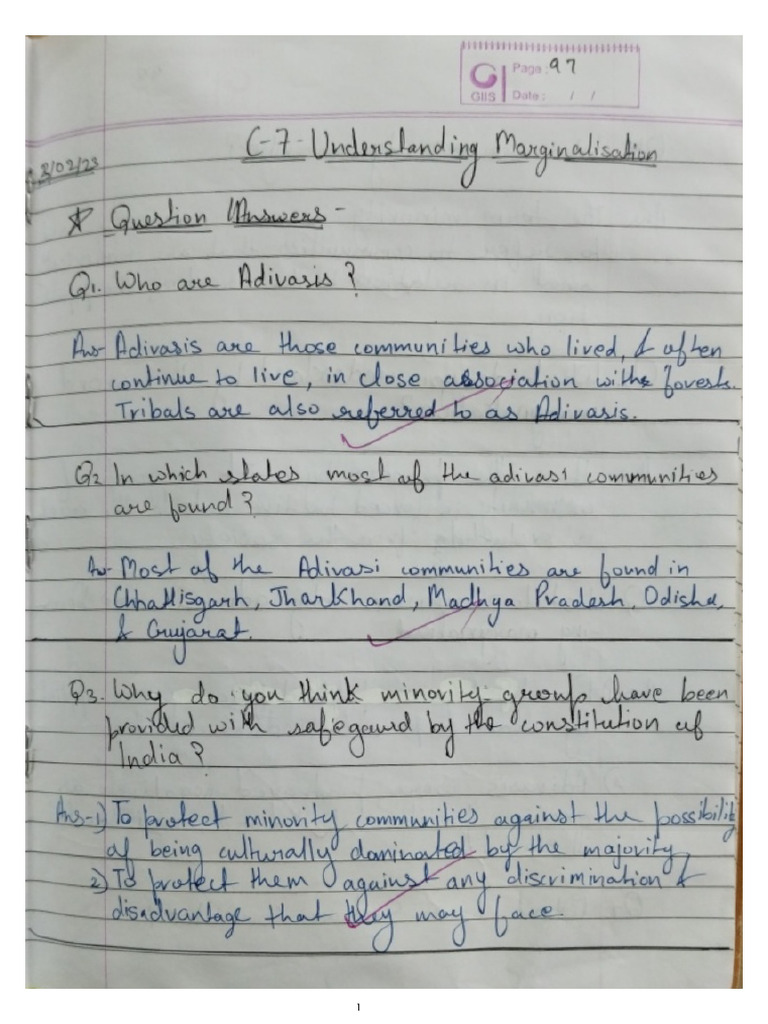 Page: 97
GIIS Date: / /
C-7-Understanding Marginalisation
3/02/23
☆ Question/Answers-
Q1. Who are Adivasis?
Ans- Adivasis are those communities who lived, & often
continue to live, in close association with forests.
Tribals are also referred to as Adivasis.
Q2 In which states most of the adivasi communities
are found?
A- Most of the Adivasi communities are found in
Chhattisgarh, Jharkhand, Madhya Pradesh, Odisha,
& Gujarat.
Q3. Why do you think minority group have been
provided with safegaurd by the constitution of
India?
Ans-1) To protect minority communities against the possibility
of being culturally dominated by the majority
2) To protect them against any discrimination &
disadvantage that they may face.
1